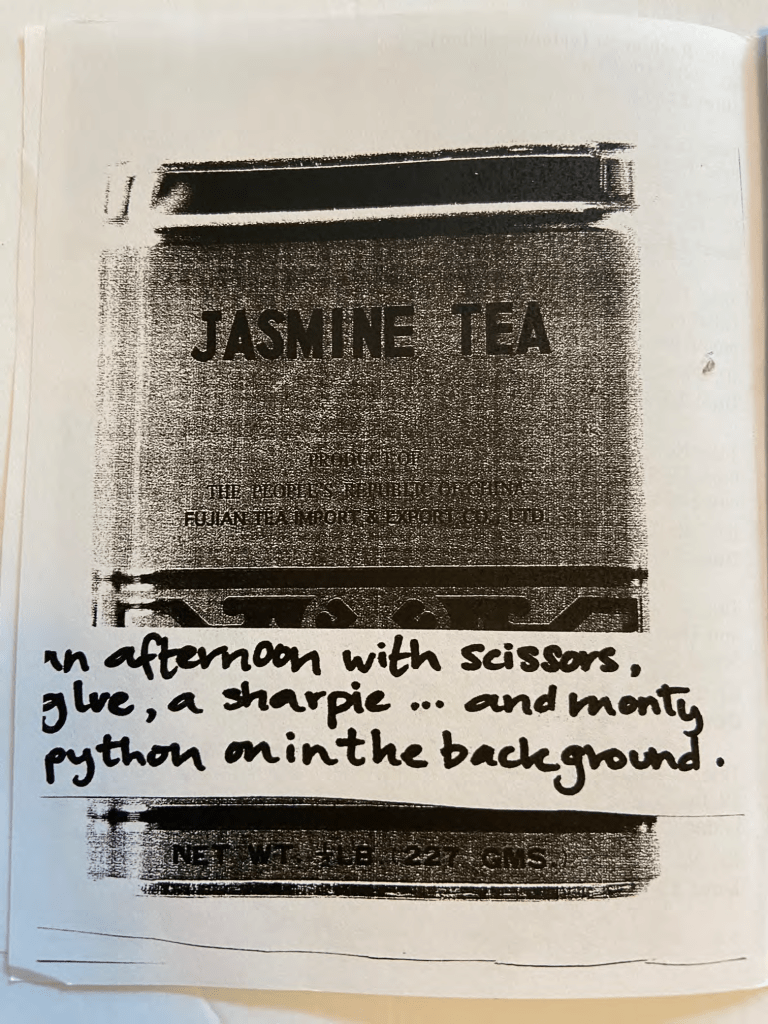 JASMINE TEA
PRODUCE OF
THE PEOPLE'S REPUBLIC OF CHINA
FUJIAN TEA IMPORT & EXPORT CO., LTD.
an afternoon with scissors,
glue, a sharpie ... and monty
python on in the background.
NET WT. ½LB. (227 GMS.)